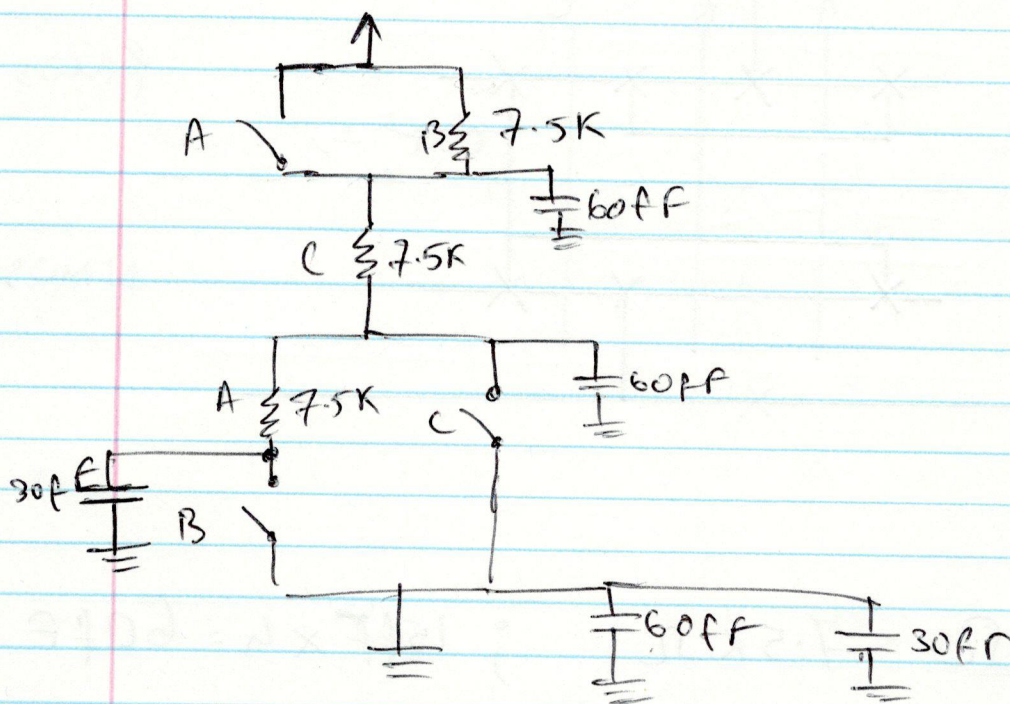 A
B 7.5K
60fF
C 7.5K
A 7.5K
C
60fF
30fF
B
60fF
30fF